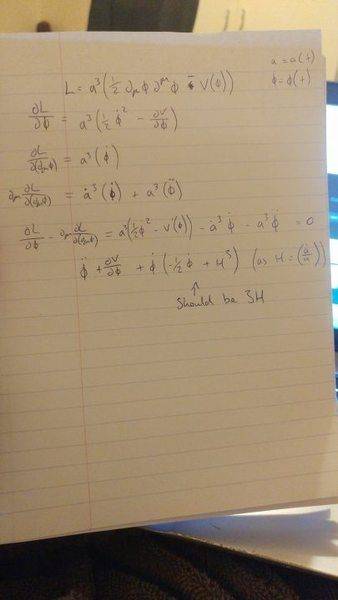 a = a(t)
L = a³(½ ∂μφ ∂^μφ - V(φ))
φ = φ(t)
∂L/∂φ = a³(½ φ̇² - ∂V/∂φ)
∂L/∂(∂μφ) = a³(φ̇)
∂μ ∂L/∂(∂μφ) = ȧ³(φ̇) + a³(φ̈)
∂L/∂φ - ∂μ ∂L/∂(∂μφ) = a³(½φ̇² - V'(φ)) - ȧ³φ̇ - a³φ̈ = 0
φ̈ + ∂V/∂φ + φ̇(-½φ̇ + H³) (as H = (ȧ/a))
↑
Should be 3H